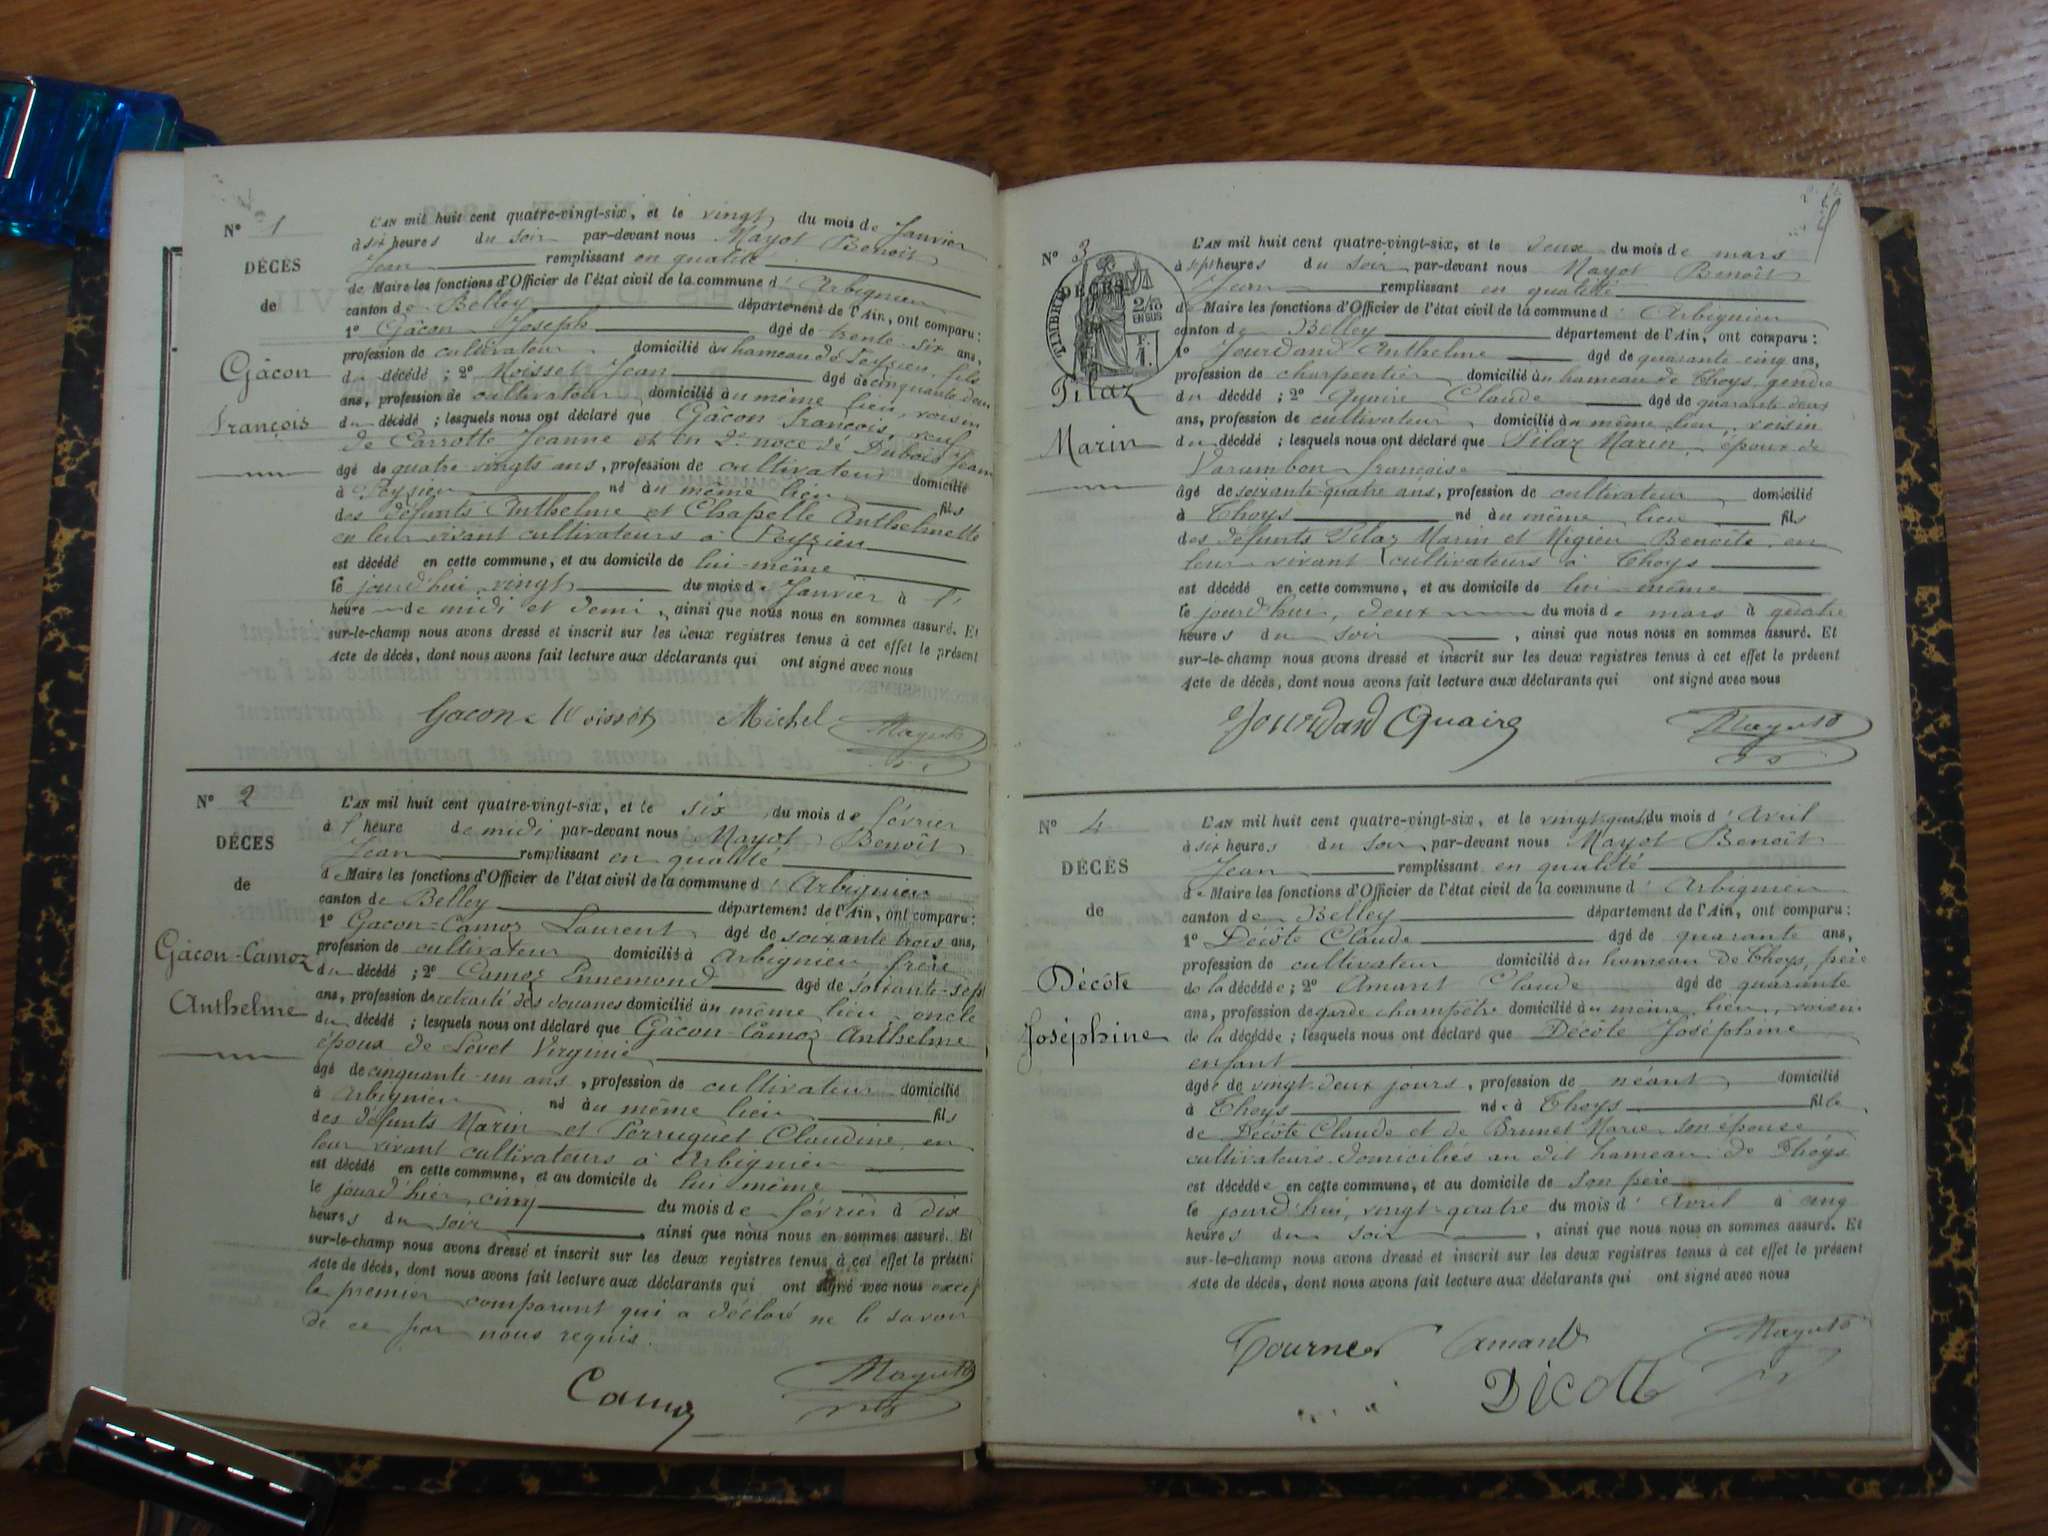 N° 1
DÉCÈS
de
Gâcon
François
L'AN mil huit cent quatre-vingt-six, et le vingt du mois de Janvier
à six heures du soir par-devant nous Mayot Benoît
Jean remplissant en qualité
de Maire les fonctions d'Officier de l'état civil de la commune d' Arbignieu
canton de Belley département de l'Ain, ont comparu :
1° Gâcon Joseph âgé de trente-six ans,
profession de cultivateur domicilié au hameau de Peyzieu, fils
du décédé ; 2° Moisset Jean âgé de cinquante deux
ans, profession de cultivateur domicilié au même lieu, voisin
du décédé ; lesquels nous ont déclaré que Gâcon François, veuf
de Carrotte Jeanne et en 2e noce de Dubois Jeanne
âgé de quatre vingts ans, profession de cultivateur domicilié
à Peyzieu né au même lieu fils
des défunts Anthelme et Chapelle Anthelmette
en leur vivant cultivateurs à Peyzieu
est décédé en cette commune, et au domicile de lui-même
le jourd'hui vingt du mois de Janvier à l'
heure de midi et demi, ainsi que nous nous en sommes assuré. Et
sur-le-champ nous avons dressé et inscrit sur les deux registres tenus à cet effet le présent
Acte de décès, dont nous avons fait lecture aux déclarants qui ont signé avec nous
Gacon Moisset Michel Mayot B
N° 2
DÉCÈS
de
Gâcon-Camoz
Anthelme
L'AN mil huit cent quatre-vingt-six, et le six du mois de février
à l' heure de midi par-devant nous Mayot Benoît
Jean remplissant en qualité
de Maire les fonctions d'Officier de l'état civil de la commune d' Arbignieu
canton de Belley département de l'Ain, ont comparu :
1° Gacon-Camoz Laurent âgé de soixante trois ans,
profession de cultivateur domicilié à Arbignieu frère
du décédé ; 2° Camoz Ennemond âgé de soixante-sept
ans, profession de retraité des douanes domicilié au même lieu oncle
du décédé ; lesquels nous ont déclaré que Gâcon-Camoz Anthelme
époux de Levet Virginie
âgé de cinquante-un ans, profession de cultivateur domicilié
à Arbignieu né au même lieu fils
des défunts Marin et Perruquet Claudine en
leur vivant cultivateurs à Arbignieu
est décédé en cette commune, et au domicile de lui même
le jourd'hier cinq du mois de février à dix
heures du soir ainsi que nous nous en sommes assuré. Et
sur-le-champ nous avons dressé et inscrit sur les deux registres tenus à cet effet le présent
Acte de décès, dont nous avons fait lecture aux déclarants qui ont signé avec nous excep
le premier comparant qui a déclaré ne le savoir
de ce par nous requis.
Camoz Mayot B
N° 3
TIMBRE
2/10 EN SUS
F. 1.
DÉCÈS
Pilaz
Marin
L'AN mil huit cent quatre-vingt-six, et le deux du mois de mars
à sept heures du soir par-devant nous Mayot Benoît
Jean remplissant en qualité
de Maire les fonctions d'Officier de l'état civil de la commune d' Arbignieu
canton de Belley département de l'Ain, ont comparu :
1° Jourdand Anthelme âgé de quarante-cinq ans,
profession de charpentier domicilié au hameau de Thoys, gendre
du décédé ; 2° Quaire Claude âgé de quarante-deux
ans, profession de cultivateur domicilié au même lieu, voisin
du décédé ; lesquels nous ont déclaré que Pilaz Marin, époux de
Varambon françoise
âgé de soixante-quatre ans, profession de cultivateur domicilié
à Thoys né au même lieu fils
des défunts Pilaz Marin et Migieu Benoîte en
leur vivant cultivateurs à Thoys
est décédé en cette commune, et au domicile de lui-même
le jourd'hui, deux du mois de mars à quatre
heures du soir, ainsi que nous nous en sommes assuré. Et
sur-le-champ nous avons dressé et inscrit sur les deux registres tenus à cet effet le présent
Acte de décès, dont nous avons fait lecture aux déclarants qui ont signé avec nous
Jourdand Quaire Mayot B
N° 4
DÉCÈS
de
Décôte
Joséphine
L'AN mil huit cent quatre-vingt-six, et le vingt-quatre du mois d' Avril
à six heures du soir par-devant nous Mayot Benoît
Jean remplissant en qualité
de Maire les fonctions d'Officier de l'état civil de la commune d' Arbignieu
canton de Belley département de l'Ain, ont comparu :
1° Décôte Claude âgé de quarante ans,
profession de cultivateur domicilié au hameau de Thoys, père
de la décédée ; 2° Amant Claude âgé de quarante
ans, profession de garde champêtre domicilié au même lieu, voisin
de la décédée ; lesquels nous ont déclaré que Décôte Joséphine
enfant
âgée de vingt-deux jours, profession de néant domicilié
à Thoys née à Thoys fille
de Décôte Claude et de Brunet Marie son épouse
cultivateurs domiciliés au dit hameau de Thoys
est décédée en cette commune, et au domicile de son père
le jourd'hui, vingt-quatre du mois d' Avril à cinq
heures du soir, ainsi que nous nous en sommes assuré. Et
sur-le-champ nous avons dressé et inscrit sur les deux registres tenus à cet effet le présent
Acte de décès, dont nous avons fait lecture aux déclarants qui ont signé avec nous
Tournier Amand Mayot B
Décote